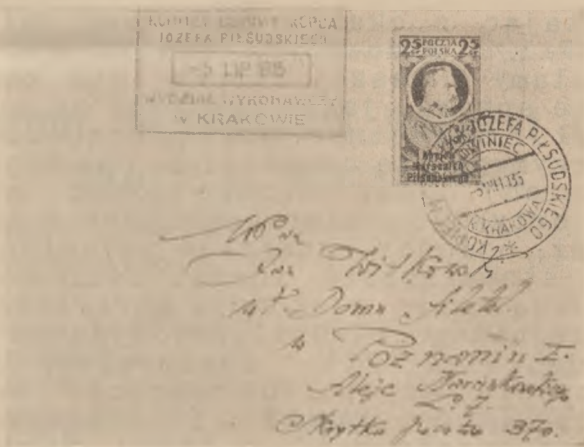 KOMITET BUDOWY KOPCA
JÓZEFA PIŁSUDSKIEGO
-5 LIP 935
WYDZIAŁ WYKONAWCZY
W KRAKOWIE
25 POCZTA 25
POLSKA
Kopiec
Marszałka
Piłsudskiego
KOPIEC JÓZEFA PIŁSUDSKIEGO
SOWINIEC
-5.VII.135
K. KRAKOWA
WPan
Jan
w P. Domu
w Poznaniu I.
Aleje Marcinkowskiego
L. 7
Skrytka poczt. 370.